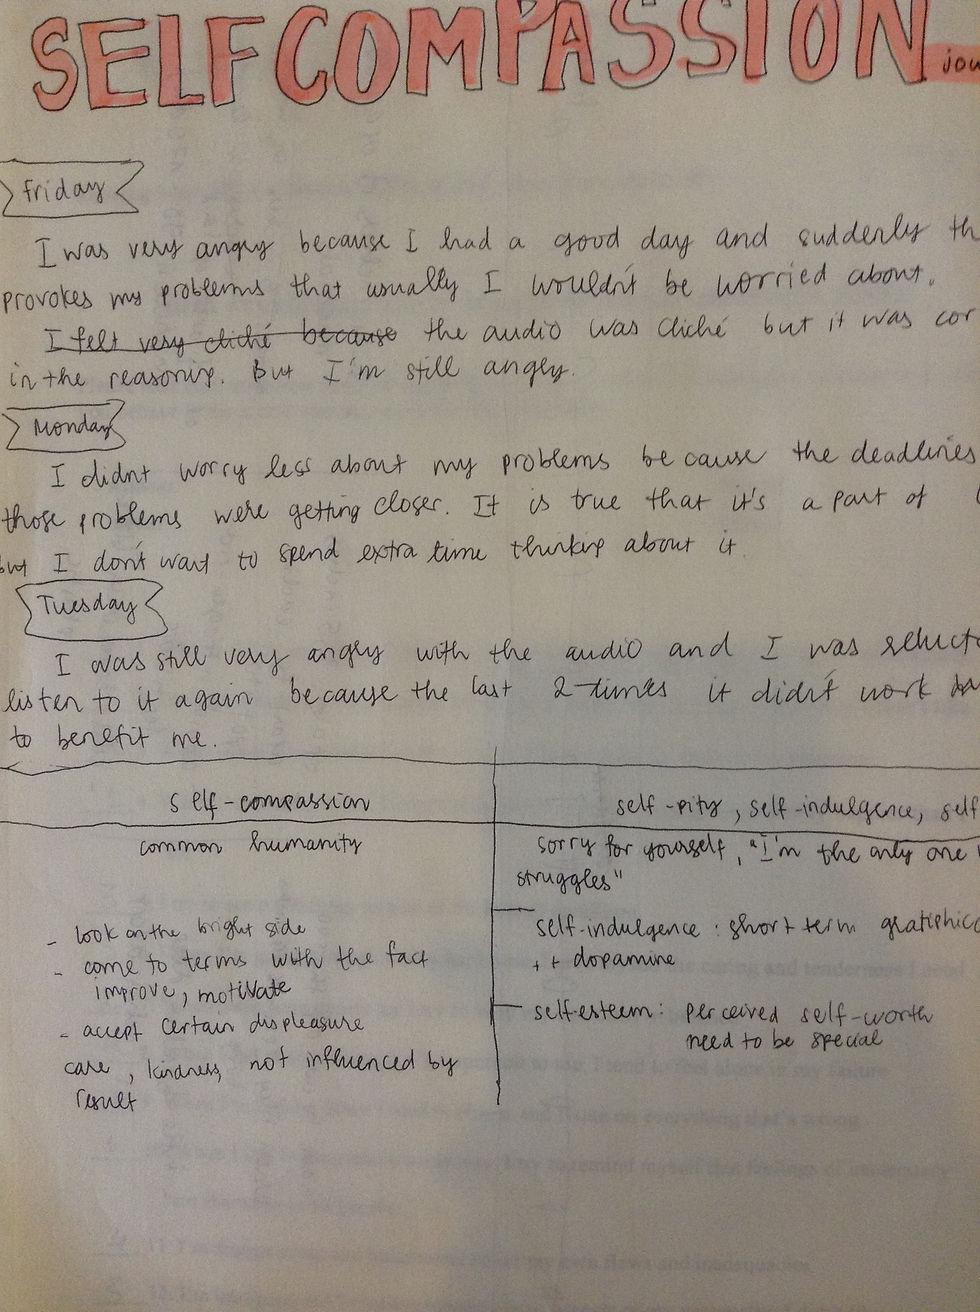 SELFCOMPASSION jou
Friday
I was very angry because I had a good day and suddenly th
provokes my problemms that usually I wouldn't be worried about.
I felt very cliché because the audio was cliché but it was cor
in the reasoning. But I'm still angry.
Monday
I didnt worry less about my problems because the deadlines
those problems were getting closer. It is true that it's a part of
but I don't want to spend extra time thinking about it.
Tuesday
I was still very angry with the audio and I was reluct
listen to it again because the last 2 times it didn't work
to benefit me.
self-compassion
self-pity, self-indulgence, self
common humanity
sorry for yourself, "I'm the only one
struggles"
- look on the bright side
- come to terms with the fact
improve, motivate
- accept certain displeasure
care, kindness, not influenced by
result
self-indulgence: short term gratiphic
++ dopamine
self-esteem: perceived self-worth
need to be special